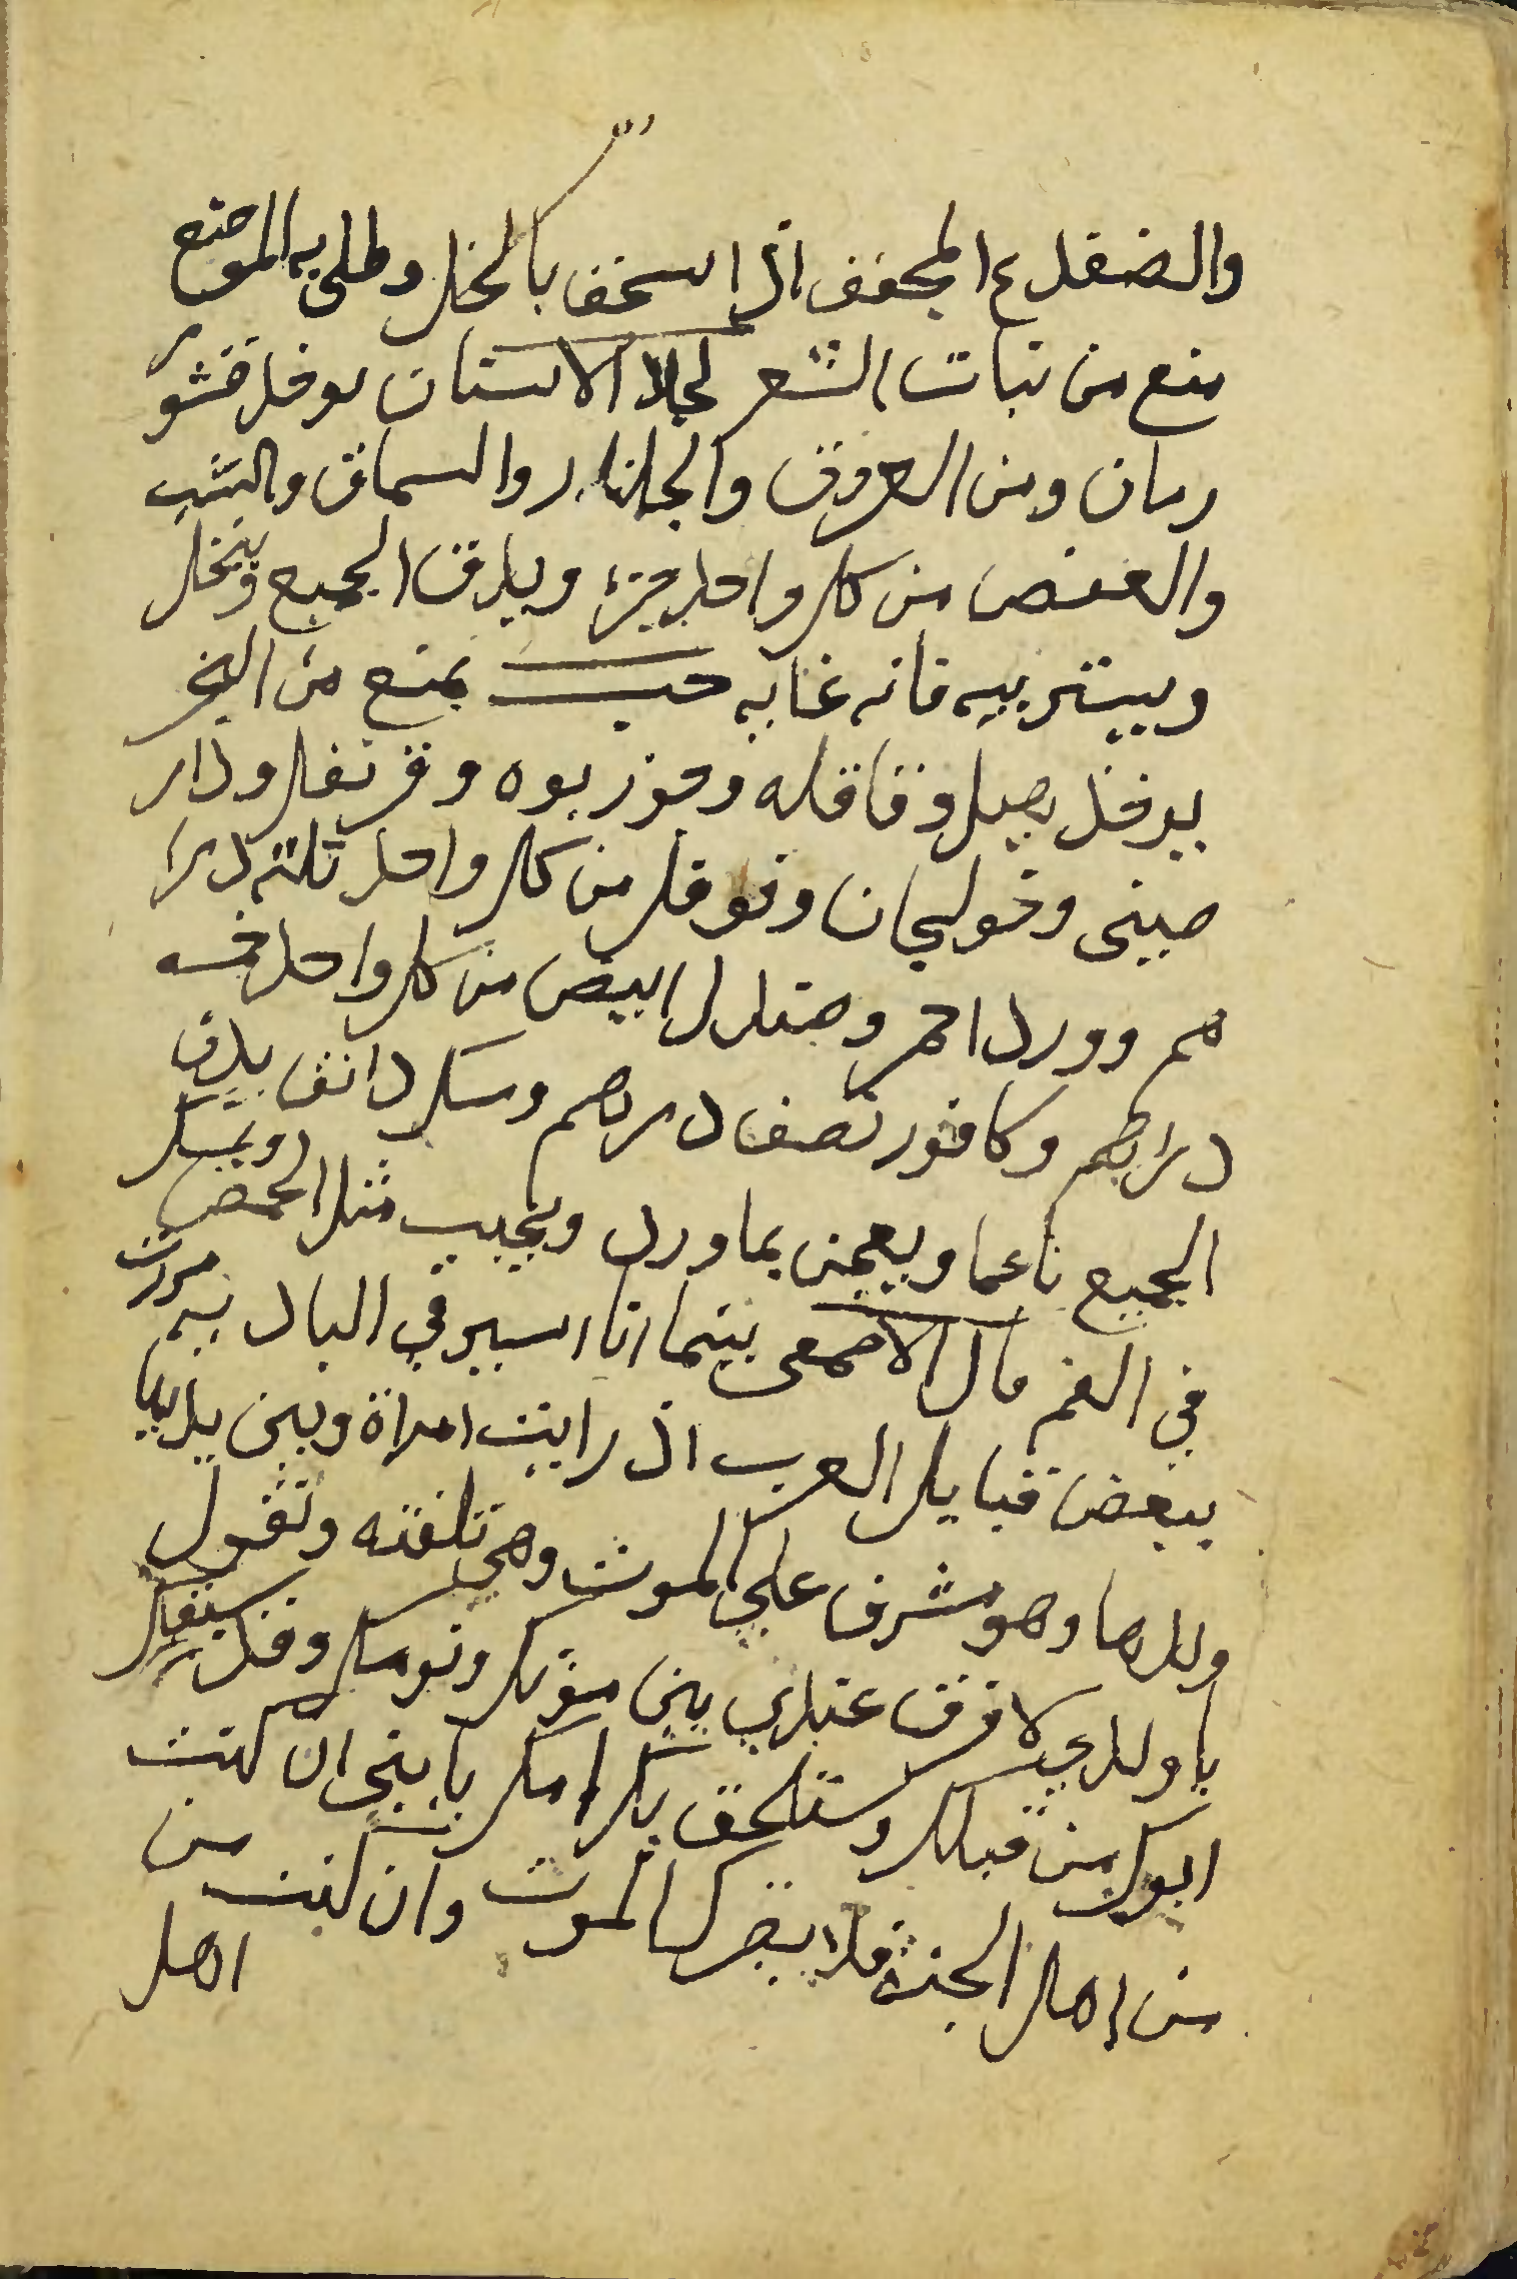 والضفدع المجفف اذا سحق بالخل وطلي به الموضع
منع من نبات الشعر لجلا الاسنان يوخذ قشور
رمان ومن العروق والجلنار والسماق والشب
والعفص من كل واحد جزء ويدق الجميع وينخل
ويستن بيه فانه غايه حب يمنع من البخر
يوخذ وقاقله وجوز بوه وقرنفل ودار
صيني وخولنجان وفوفل من كل واحد ثلثه درا
هم وورد احمر وصندل ابيض من كل واحد خمسه
دراهم وكافور نصف درهم وسك دانق يدق
الجميع ناعما ويعجن بما ورد ويحبب مثل الحمص ويمسك
في الفم قال الاصمعي بينما انا اسير في البادية مررت
ببعض قبايل العرب اذ رايت امراة وبين يديها
ولدها وهو مشرف علي الموت وهي تلقنه وتقول
يا ولدي لا فرق عندي بين موتك ونومك وقد
ابوك من قبلك وستلحق بك امك يا بني ان كنت
من اهل الجنة فلا يضرك الموت وان كنت من
اهل